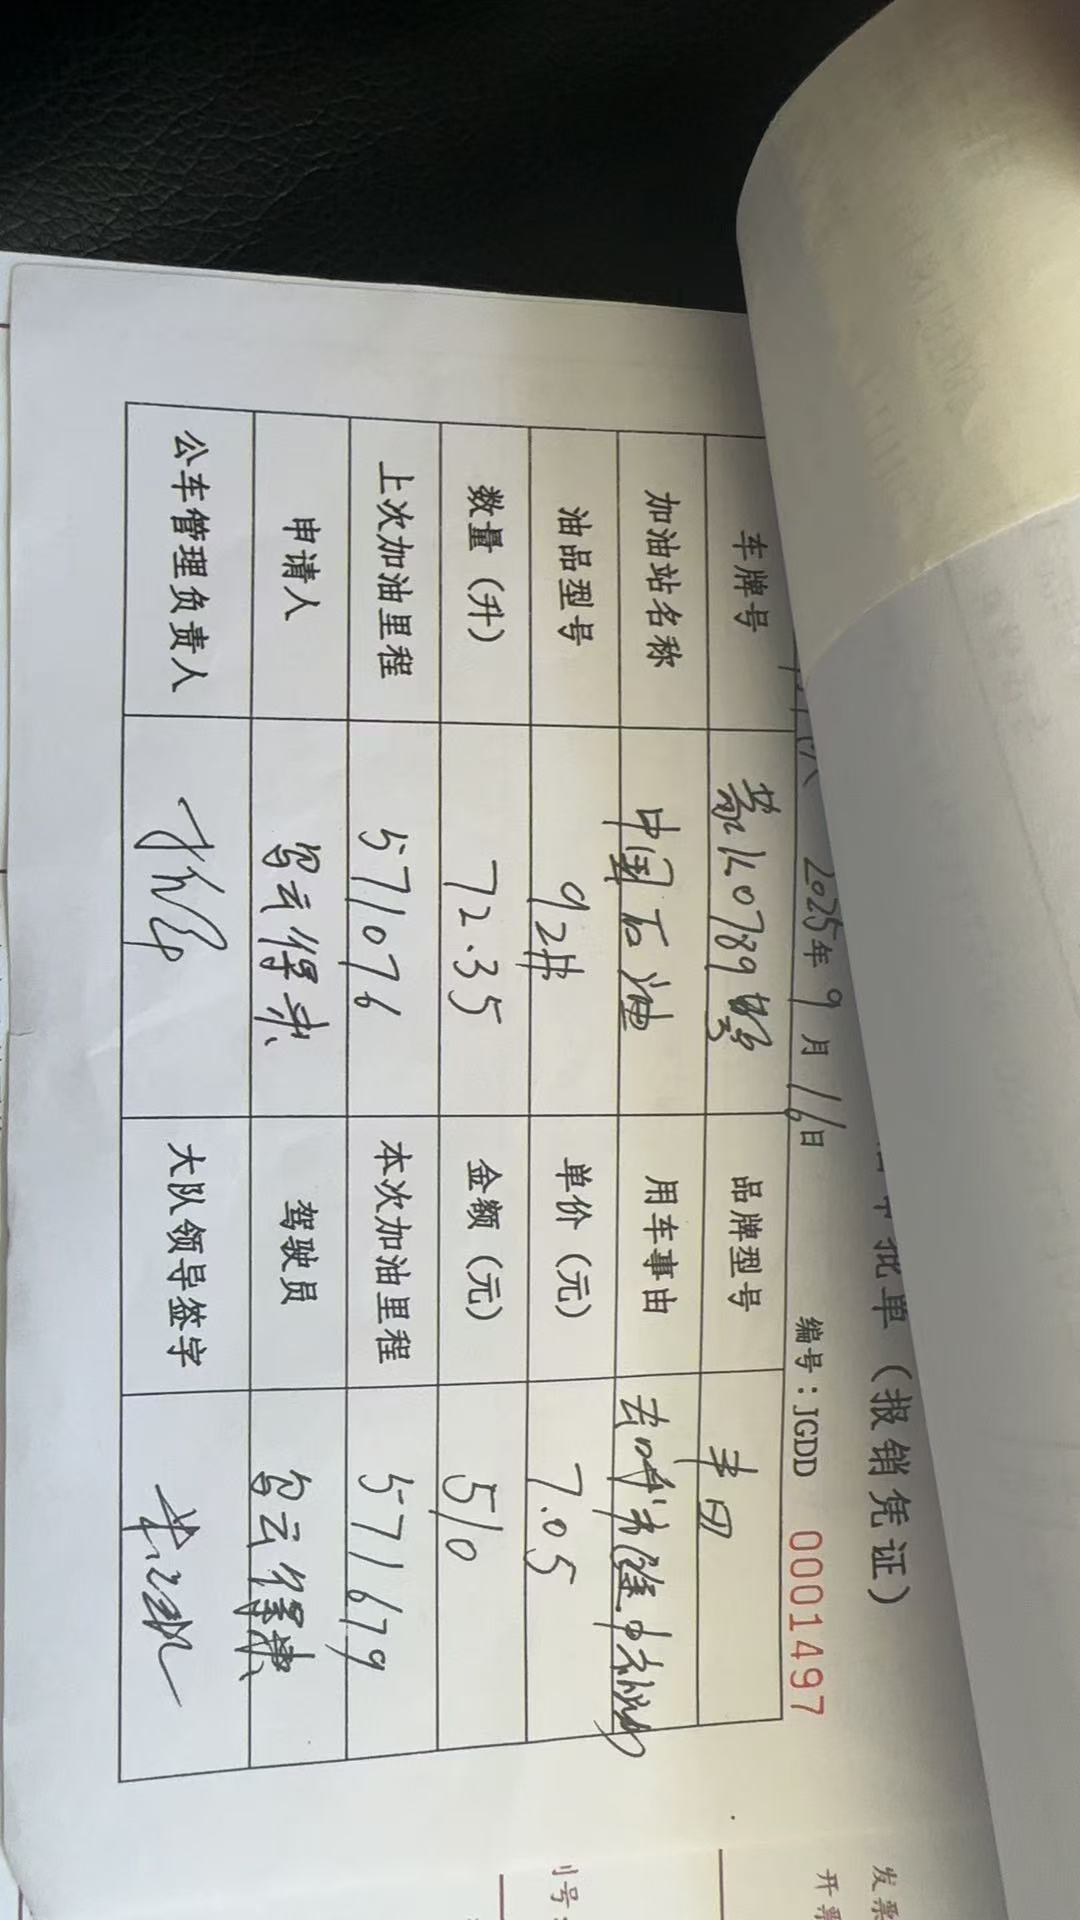 批单（报销凭证）
2025年9月16日 编号：JGDD 0001497
车牌号 蒙K0789警 品牌型号 丰田
加油站名称 中国石油 用车事由 去呼市途中补油
油品型号 92# 单价（元） 7.05
数量（升） 72.35 金额（元） 510
上次加油里程 571076 本次加油里程 571679
申请人 驾驶员
公车管理负责人 大队领导签字
发票
开票
号：